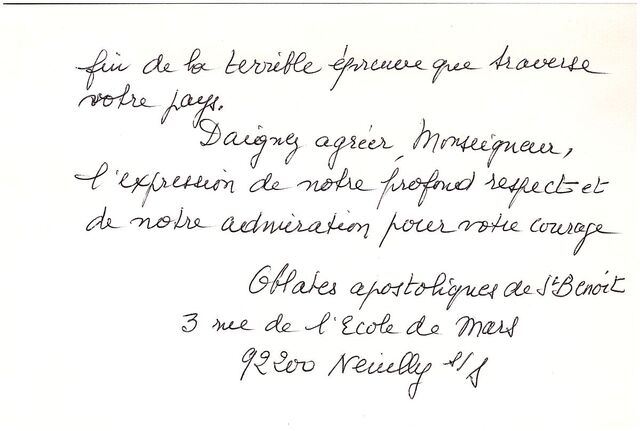 fin de la terrible épreuve que traverse
votre pays.
Daignez agréer, Monseigneur,
l'expression de notre profond respect et
de notre admiration pour votre courage
Oblates apostoliques de St Benoît
3 rue de l'Ecole de Mars
92200 Neuilly s/S